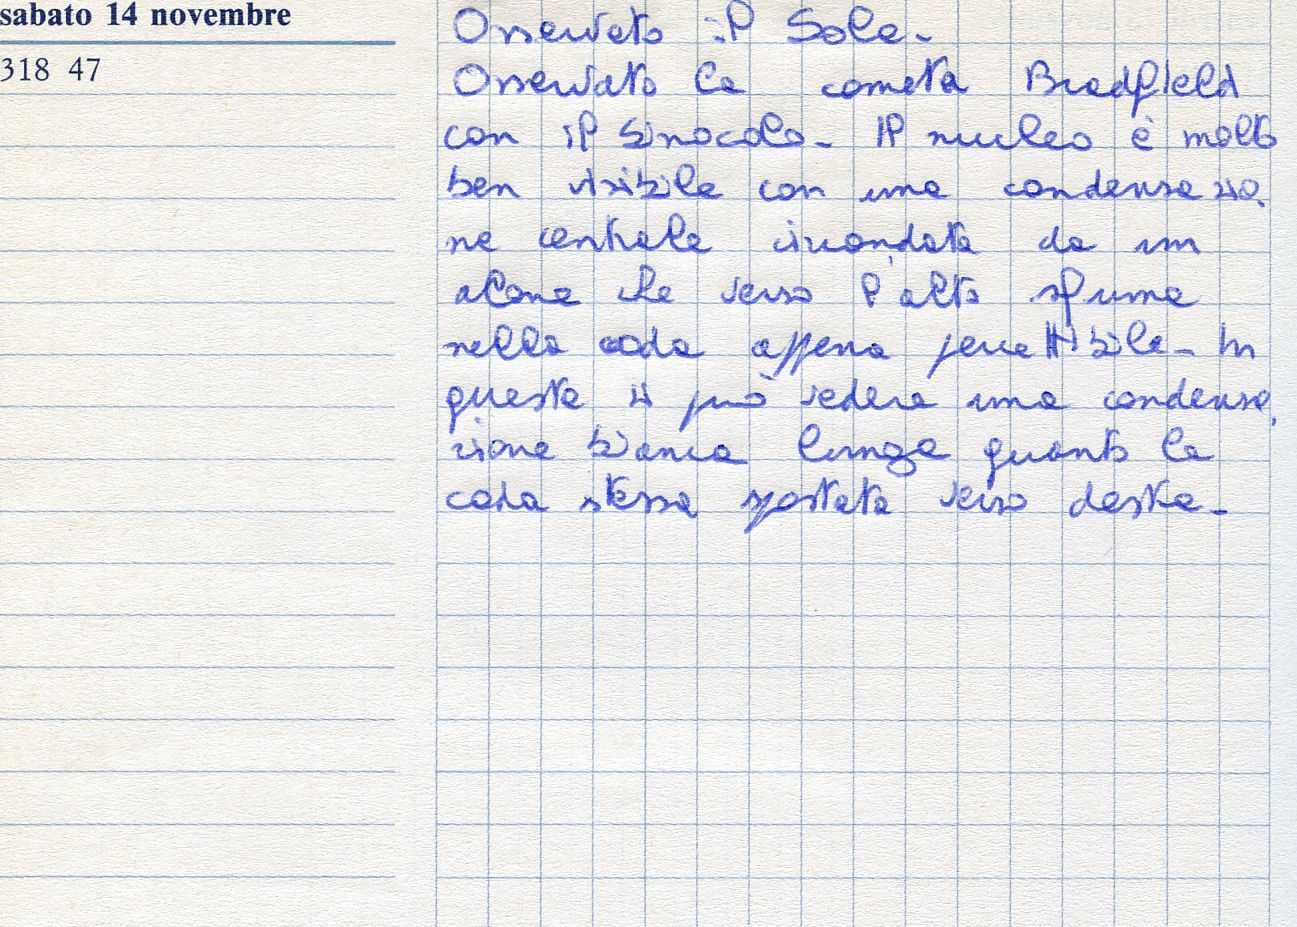 sabato 14 novembre
318 47
Osservato il Sole-
Osservato la cometa Bradfield
con il binocolo- Il nucleo è molto
ben visibile con una condensazio,
ne centrale circondata da un
alone che verso l'alto sfuma
nella coda appena percettibile- In
questa si può vedere una condensa,
zione bianca lunga quanto la
coda stessa spostata verso destra-